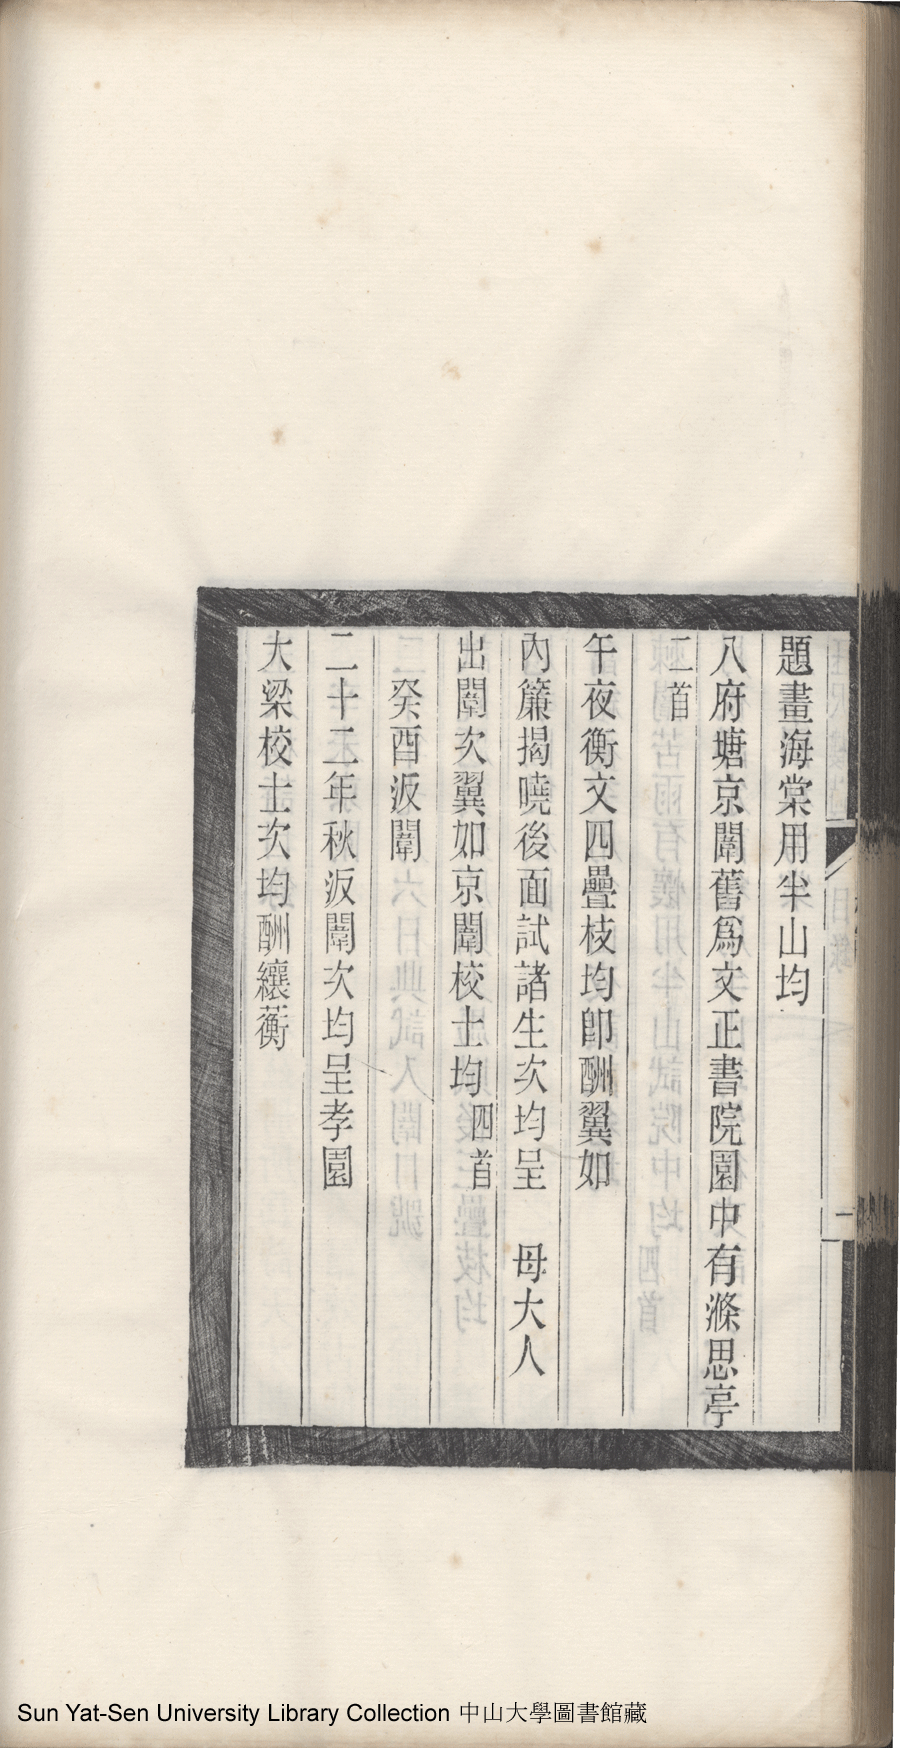 題畫海棠用半山均
八府塘京闈舊爲文正書院園中有滌思亭
二首
午夜衡文四疊枝均卽酬翼如
內簾揭曉後面試諸生次均呈　母大人
出闈次翼如京闈校士均四首
癸酉返闈
二十二年秋返闈次均呈孝園
大梁校士次均酬纕蘅
Sun Yat-Sen University Library Collection 中山大學圖書館藏